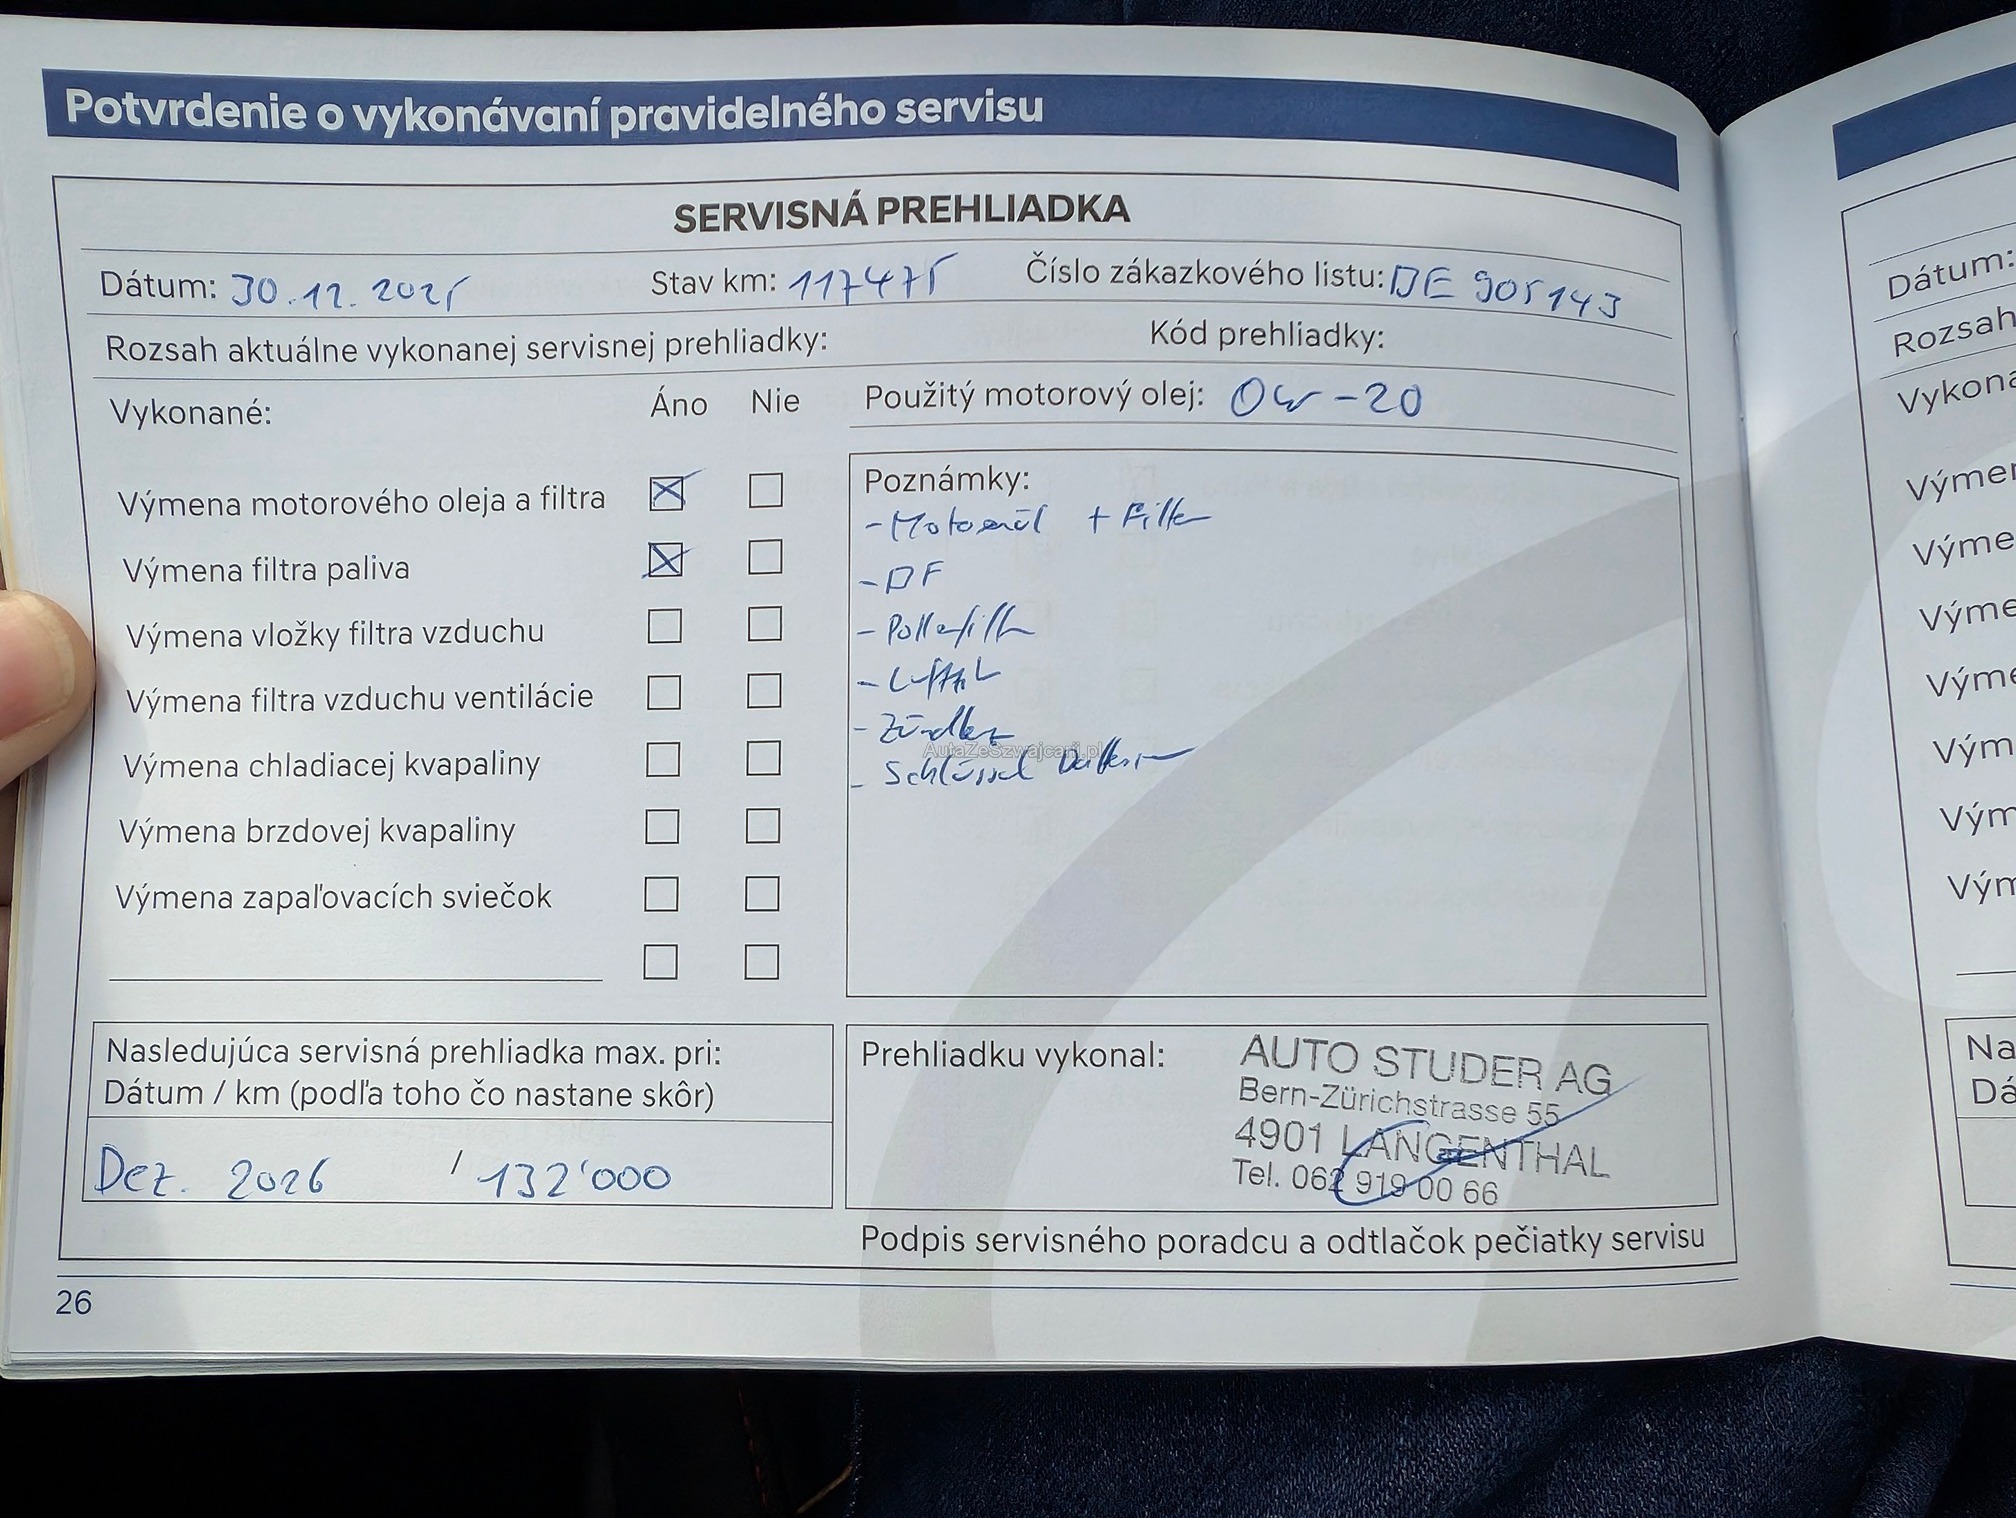 Potvrdenie o vykonávaní pravidelného servisu
SERVISNÁ PREHLIADKA
Dátum: 30.12.2025 Stav km: 117475 Číslo zákazkového listu: DE 905143
Rozsah aktuálne vykonanej servisnej prehliadky: Kód prehliadky:
Vykonané: Áno Nie Použitý motorový olej: 0W-20
Poznámky:
Výmena motorového oleja a filtra
- Motorenöl + Filter
Výmena filtra paliva
- DF
Výmena vložky filtra vzduchu
- Pollenfilter
Výmena filtra vzduchu ventilácie
-
- Zündkerz
AutaZeSzwajcarii.pl
Výmena chladiacej kvapaliny
- Schlüssel Batterien
Výmena brzdovej kvapaliny
Výmena zapaľovacích sviečok
Nasledujúca servisná prehliadka max. pri:
Dátum / km (podľa toho čo nastane skôr)
Dez. 2026 / 132'000
Prehliadku vykonal:
AUTO STUDER AG
Bern-Zürichstrasse 55
4901 LANGENTHAL
Tel. 062 919 00 66
Podpis servisného poradcu a odtlačok pečiatky servisu
26
Dátum:
Rozsah
Vykona
Výmer
Výme
Výme
Výme
Vým
Vým
Vým
Na
Dá